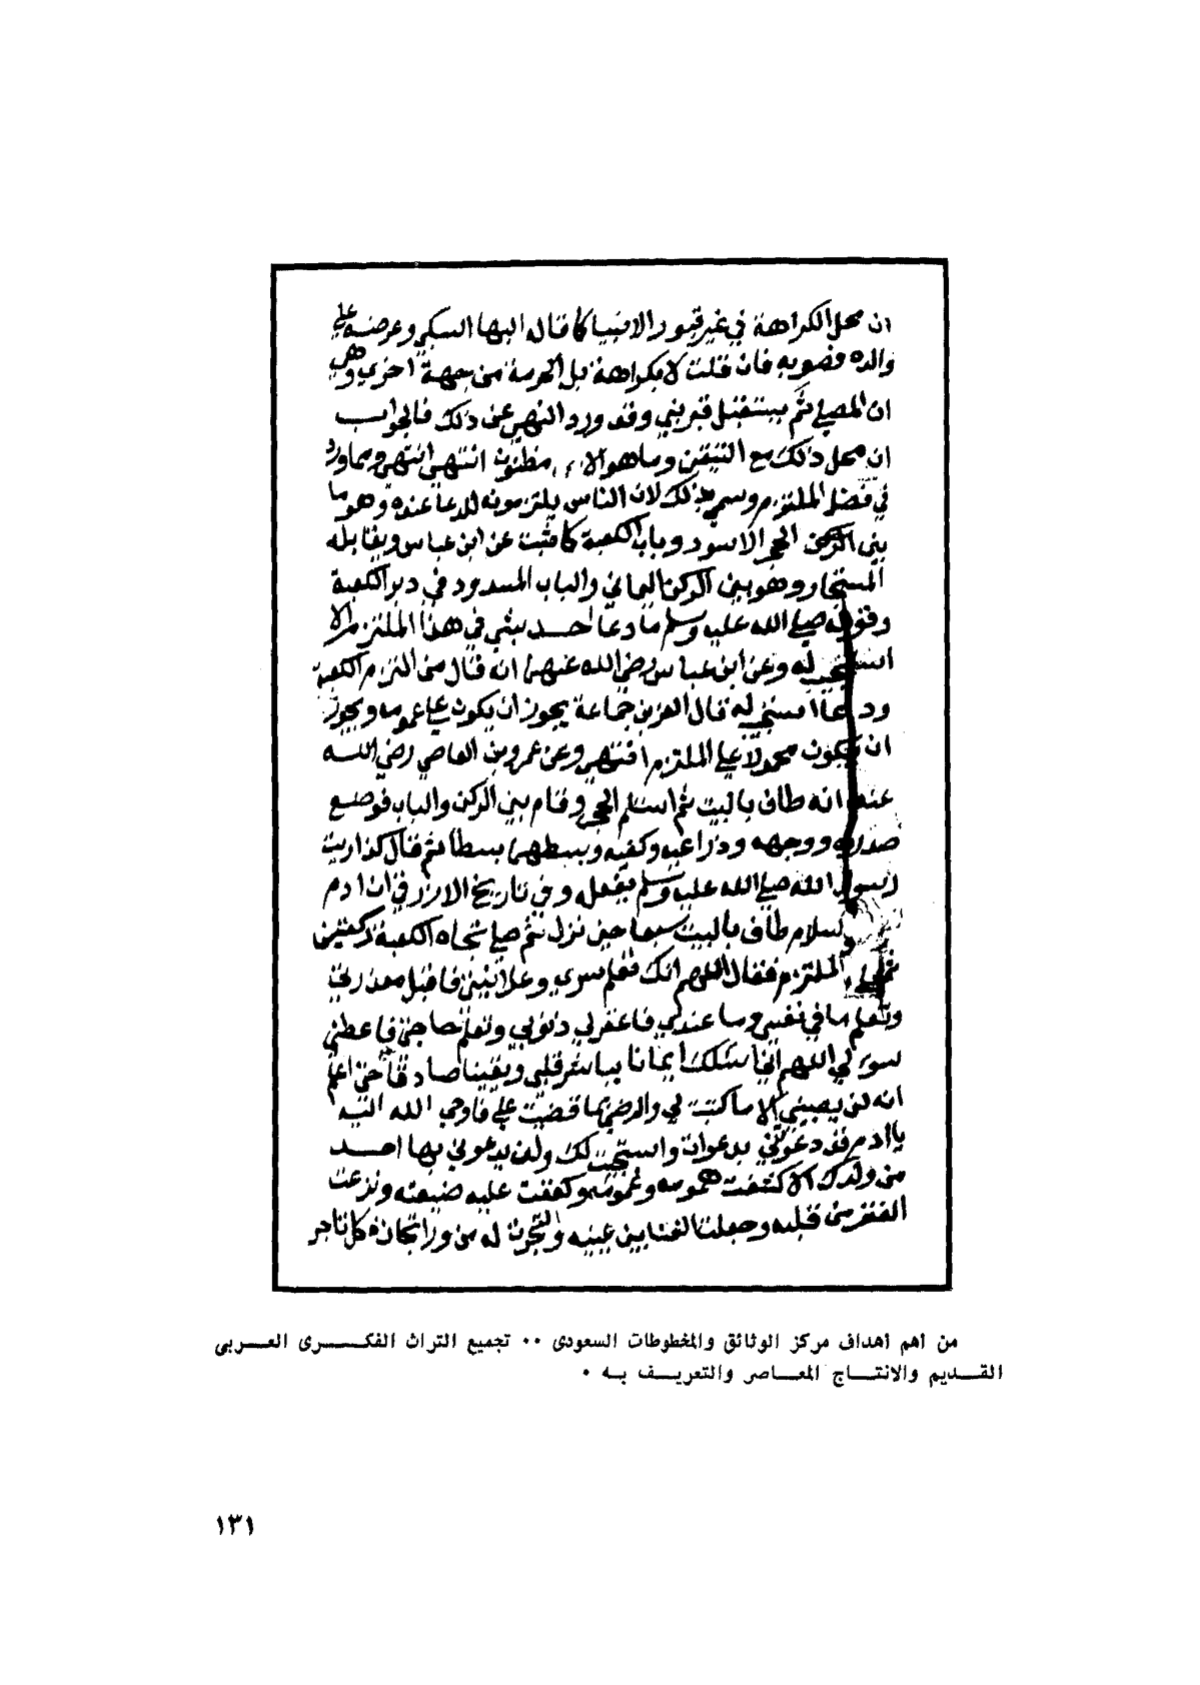 ان محل الكراهة في غير قبور الانبيا كما قال البها السبكي وعرضه علي
والده فصوبه فان قلت لا بكراهة بل الحرمة من جهة اخري وهي
ان المصلي ثم يستقبل قبر نبي وقد ورد النهي عن ذلك فالجواب
ان محل ذلك مع التيقن وما هو الا مظنون انتهي انتهي ومما ورد
في فضل الملتزم وسمي بذلك لان الناس يلتزمونه للدعا عنده وهو ما
بين الركن الحجر الاسود وباب الكعبة كما ثبت عن ابن عباس ويقابله
المستجار وهو بين الركن اليماني والباب المسدود في دبر الكعبة
وقوله صلي الله عليه وسلم ما دعا احد بشي في هذا الملتزم الا
استجيب له وعن ابن عباس رضي الله عنهما انه قال من التزم الكعبة
ودعا استجيب له قال العز بن جماعة يجوز ان يكون علي عمومه ويجوز
ان يكون محمولا علي الملتزم انتهي وعن عمرو بن العاصي رضي الله
عنه انه طاف بالبيت ثم استلم الحجر وقام بين الركن والباب فوضع
صدره ووجهه وذراعيه وكفيه وبسطهما بسطا ثم قال كذا رايت
رسول الله صلي الله عليه وسلم يفعل وفي تاريخ الازرقي ان ادم
والسلام طاف بالبيت سبعا حين نزل ثم صلي تجاه الكعبة ركعتين
الملتزم فقال اللهم انك تعلم سري وعلانيتي فاقبل معذرتي
وتعلم ما في نفسي وما عندي فاغفر لي ذنوبي وتعلم حاجتي فاعطني
سولي اللهم اني اسئلك ايمانا يباشر قلبي ويقينا صادقا حتي اعلم
انه لن يصيبني الا ما كتبت لي والرضي بما قضيت علي فاوحي الله اليه
يا ادم قد دعوتني بدعوات واستجبت لك ولن يدعوني بها احد
من ولدك الا كشفت همومه وغمومه وكففت عليه ضيعته ونزعت
الفقر من قلبه وجعلت الغنا بين عينيه واتجرت له من ورا تجارة كل تاجر
من اهم اهداف مركز الوثائق والمخطوطات السعودى ٠٠ تجميع التراث الفكـــــرى العـــربى
القـــديم والانتـــاج المعـــاصر والتعريـــف بـــه ٠
١٣١